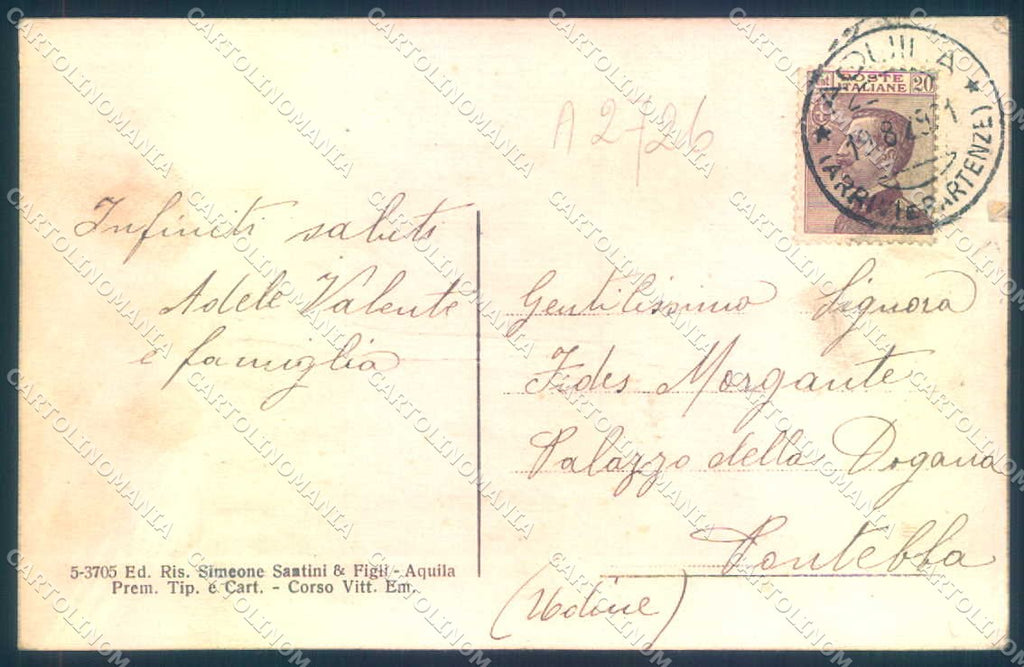 POSTE
ITALIANE
20
AQUILA
(ARRIVI E PARTENZE)
A 2726
Infiniti saluti
Adele Valente
e famiglia
Gentilissima Signora
Fides Morgante
Palazzo della Dogana
Pontebba
(Udine)
5-3705 Ed. Ris. Simeone Santini & Figli - Aquila
Prem. Tip. e Cart. - Corso Vitt. Em.
CARTOLINOMANIA